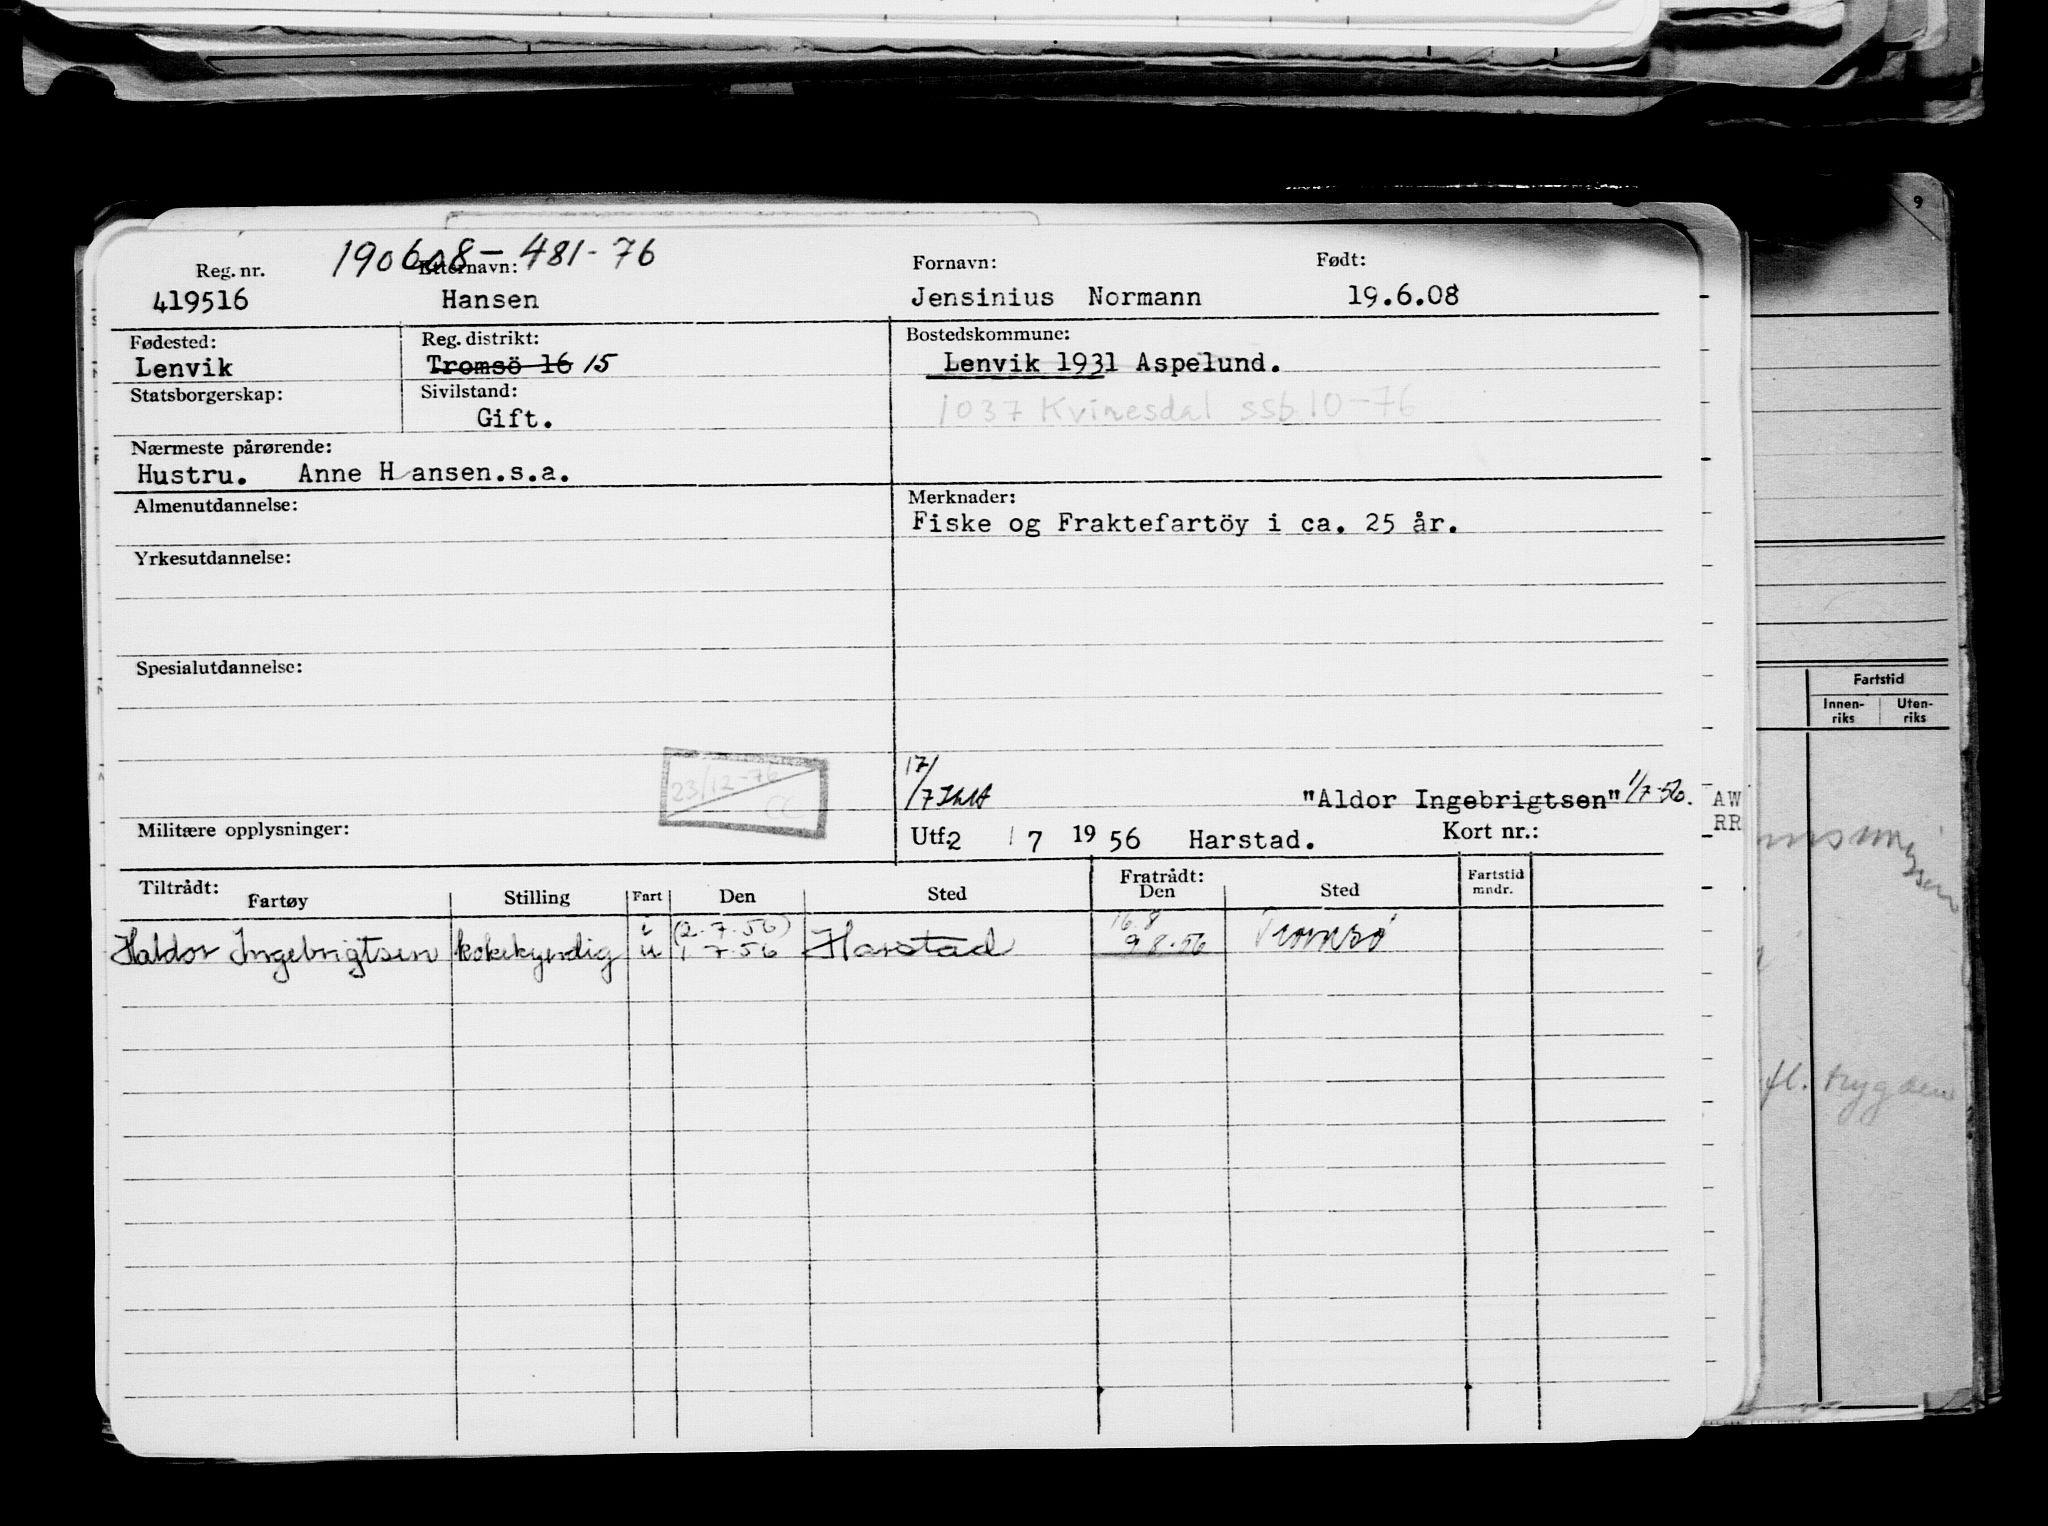 9
190608-481-76
Reg. nr. Etternavn: Fornavn: Født:
419516 Hansen Jensinius Normann 19.6.08
Fødested: Reg. distrikt: Bostedskommune:
Lenvik Tromsö 16 15 Lenvik 1931 Aspelund.
Statsborgerskap: Sivilstand:
Gift. 1037 Kvinesdal ssb 10-76
Nærmeste pårørende:
Hustru. Anne Hansen.s.a.
Almenutdannelse: Merknader:
Fiske og Fraktefartöy i ca. 25 år.
Yrkesutdannelse:
Spesialutdannelse:
Fartstid
Innen-riks Uten-riks
23/12-76
CC
17/7 "Aldor Ingebrigtsen" 1/7-56. AW
RR
Militære opplysninger: Utf. 2 / 7 1956 Harstad. Kort nr.:
Tiltrådt: Fratrådt: Fartstid mndr.
Fartøy Stilling Fart Den Sted Den Sted
i (2-7-56) 16.8
Haldor Ingebrigtsen kokekyndig u 1 7-56 Harstad 9 8-56 Tromsø
fl. trygden